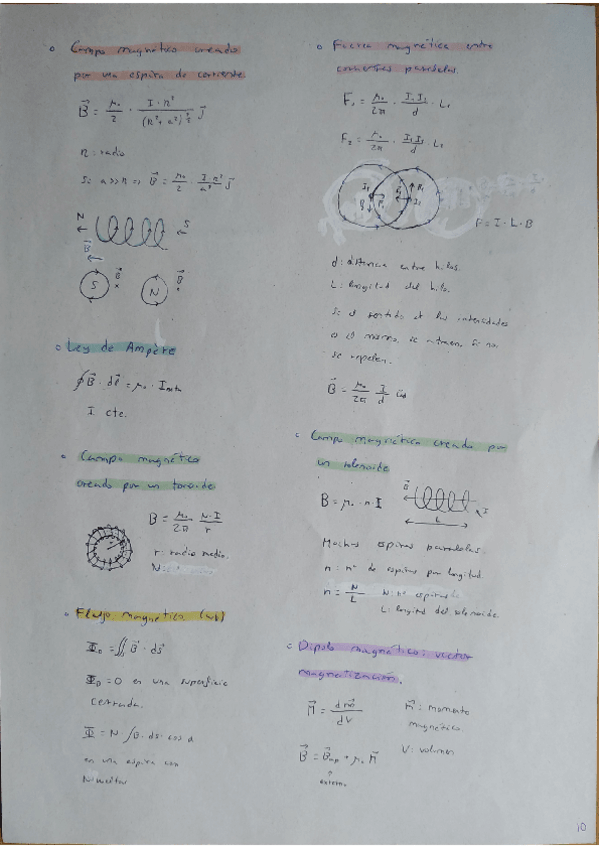 Campo magnético creado
por una espira de corriente
B = μ₀/2 · I·R²/(R²+a²)^(3/2) j
R: radio
Si a>>R ⇒ B = μ₀/2 · I·R²/a³ j
N
S
B
S
B
N
B
Ley de Ampère
∮B · dl = μ₀ · I
I cte.
Campo magnético
creado por un toroide
B = μ₀/2π · N·I/r
r: radio medio.
Flujo magnético
Φ = ∬B · ds
Φ = 0 en una superficie
cerrada.
Φ = N · ∫B · ds · cos α
en una espira con
N vueltas
Fuerza magnética entre
corrientes paralelas.
F₁ = μ₀/2π · I₁I₂/d · L₁
F₂ = μ₀/2π · I₁I₂/d · L₂
F = I · L · B
d: distancia entre hilos.
L: longitud del hilo.
Si el sentido de las intensidades
es el mismo, se atraen. Si no
se repelen.
B = μ₀/2π I/d
Campo magnético creado por
un solenoide
B = μ₀ · n · I
B
I
L
Muchas espiras paralelas.
n = nº de espiras por longitud
n = N/L N: nº espiras
L: longitud del solenoide.
Dipolo magnético: vector
magnetización.
M = dm/dV
m: momento
magnético
V: volumen
B = B + μ₀ M
extern.
10